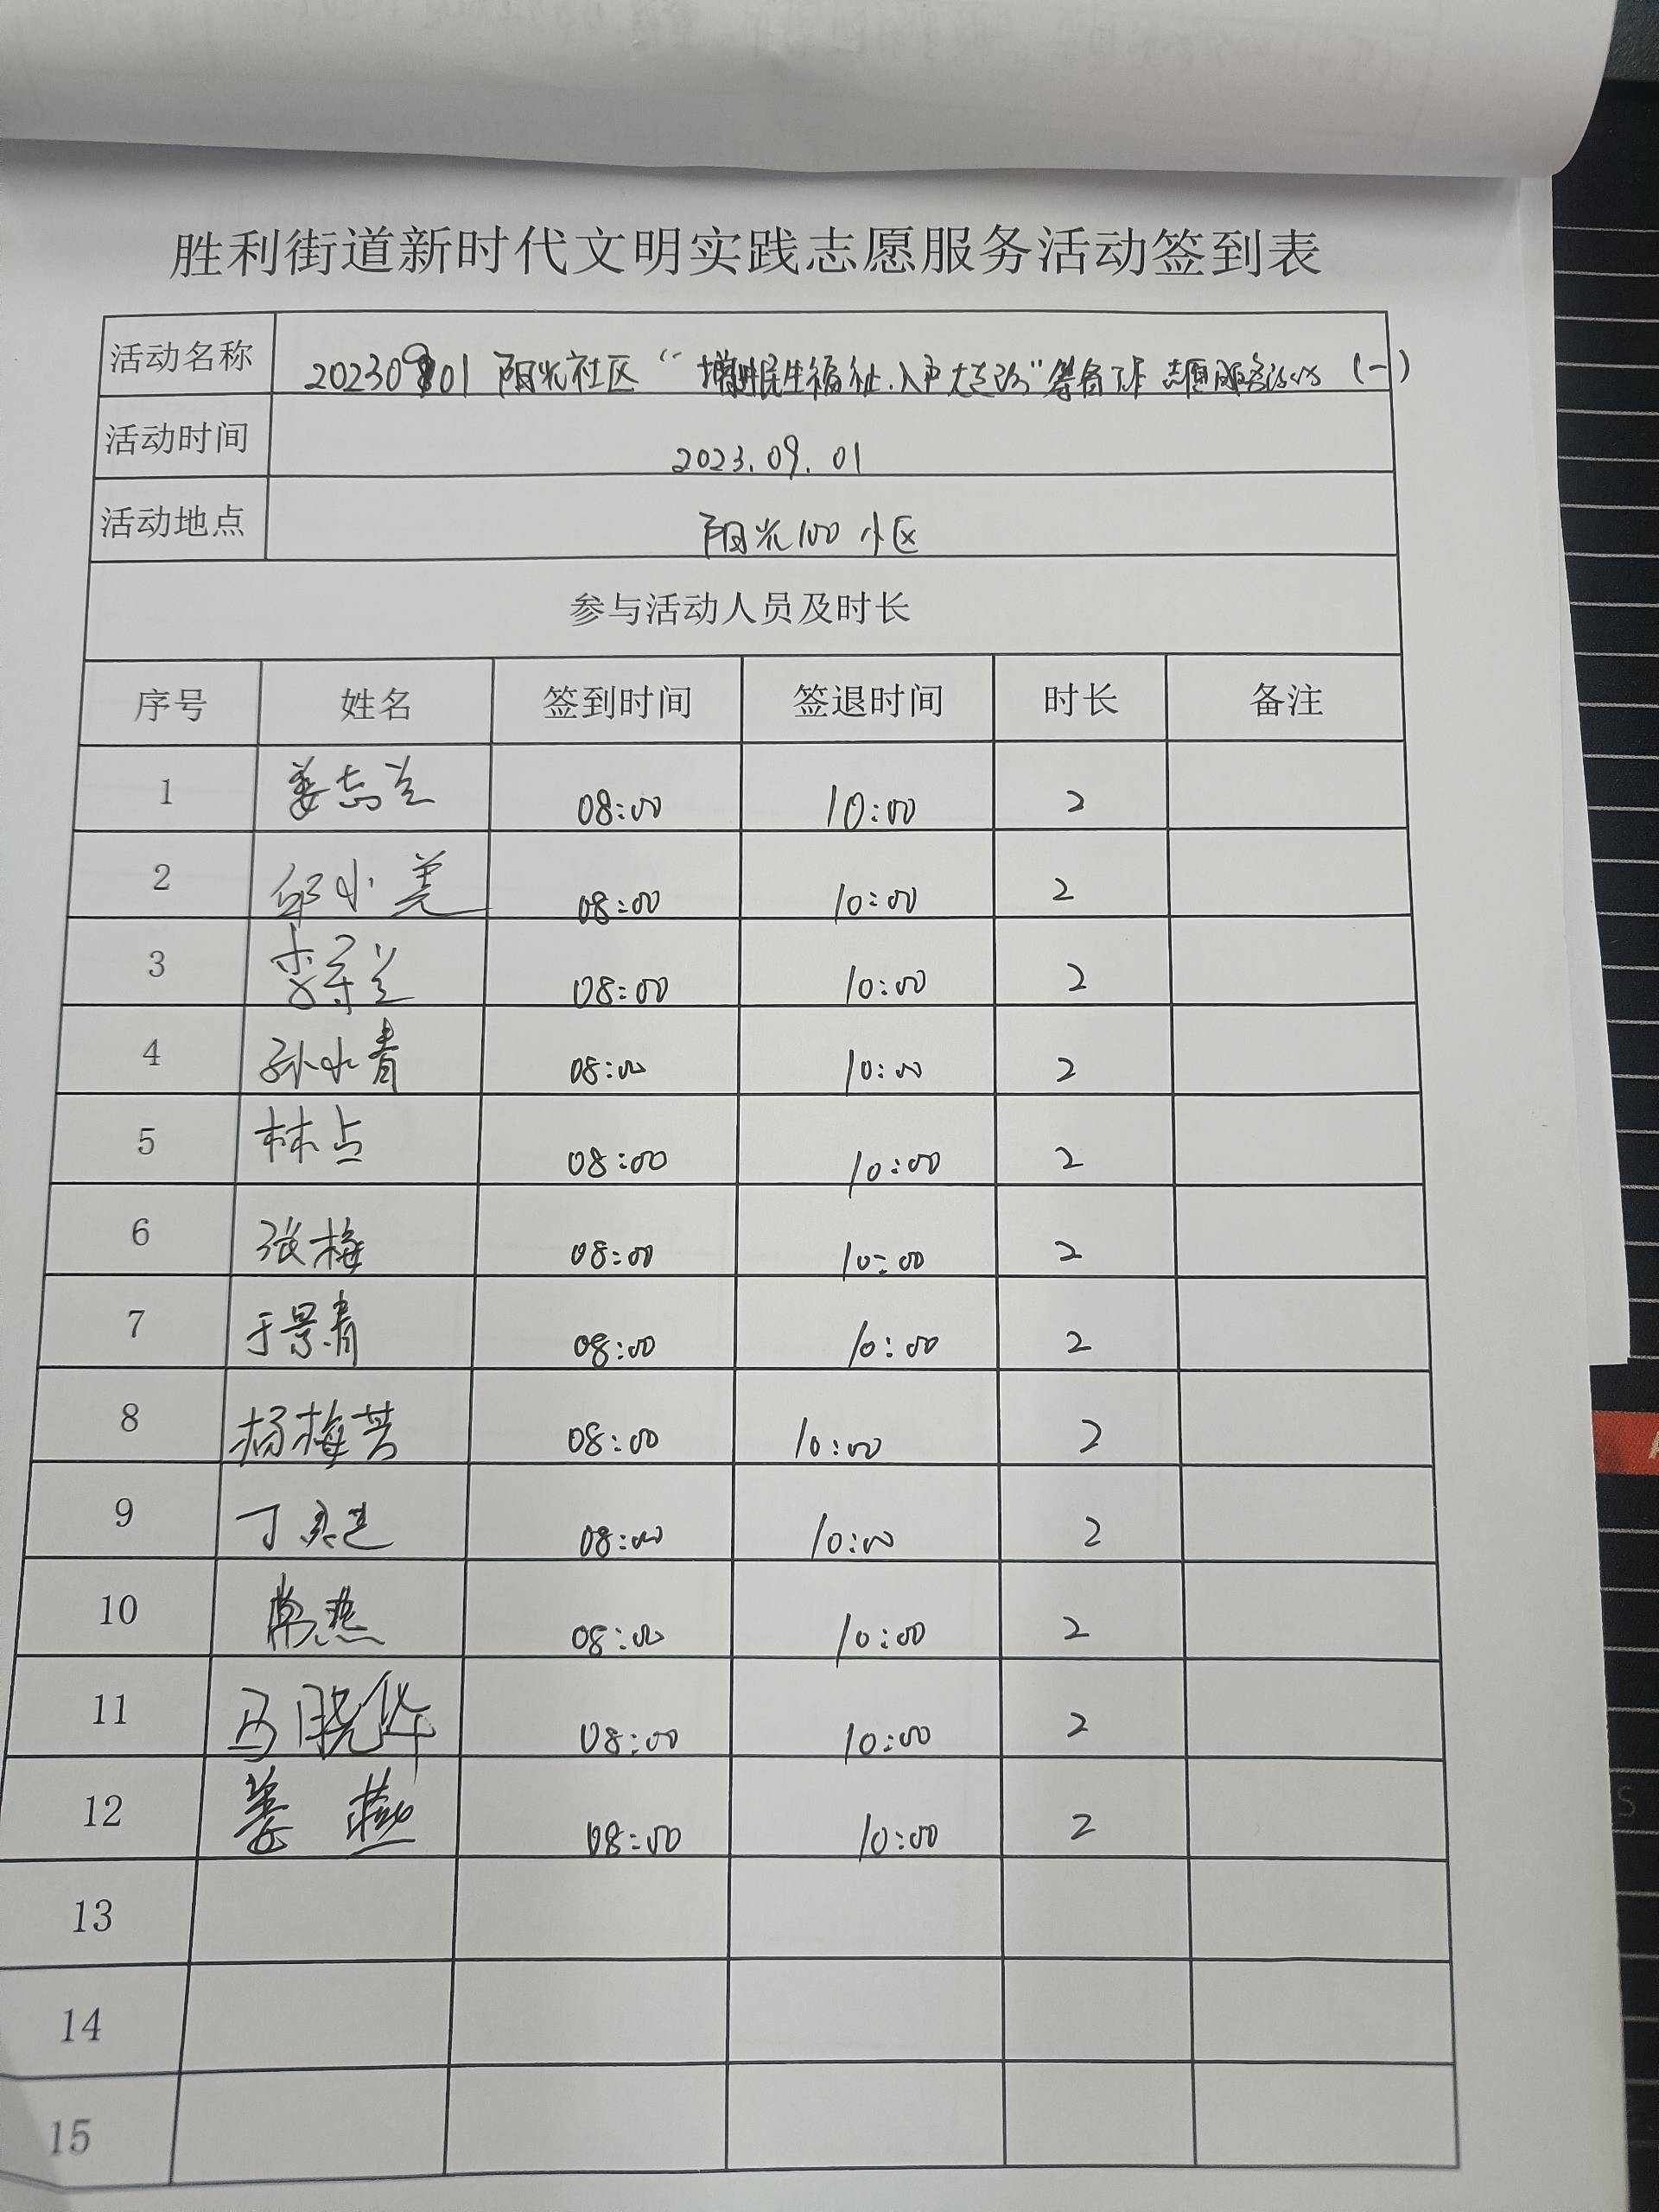 胜利街道新时代文明实践志愿服务活动签到表
活动名称 20230901 阳光社区“增进民生福祉、入户大走访”筹备工作 志愿服务活动 (一)
活动时间 2023.09.01
活动地点 阳光100小区
参与活动人员及时长
序号 姓名 签到时间 签退时间 时长 备注
1 姜志兰 08:00 10:00 2
2 邱小美 08:00 10:00 2
3 08:00 10:00 2
4 孙水青 08:00 10:00 2
5 林点 08:00 10:00 2
6 张梅 08:00 10:00 2
7 于景青 08:00 10:00 2
8 杨梅芳 08:00 10:00 2
9 丁 08:00 10:00 2
10 常燕 08:00 10:00 2
11 马晓华 08:00 10:00 2
12 姜燕 08:00 10:00 2
13
14
15